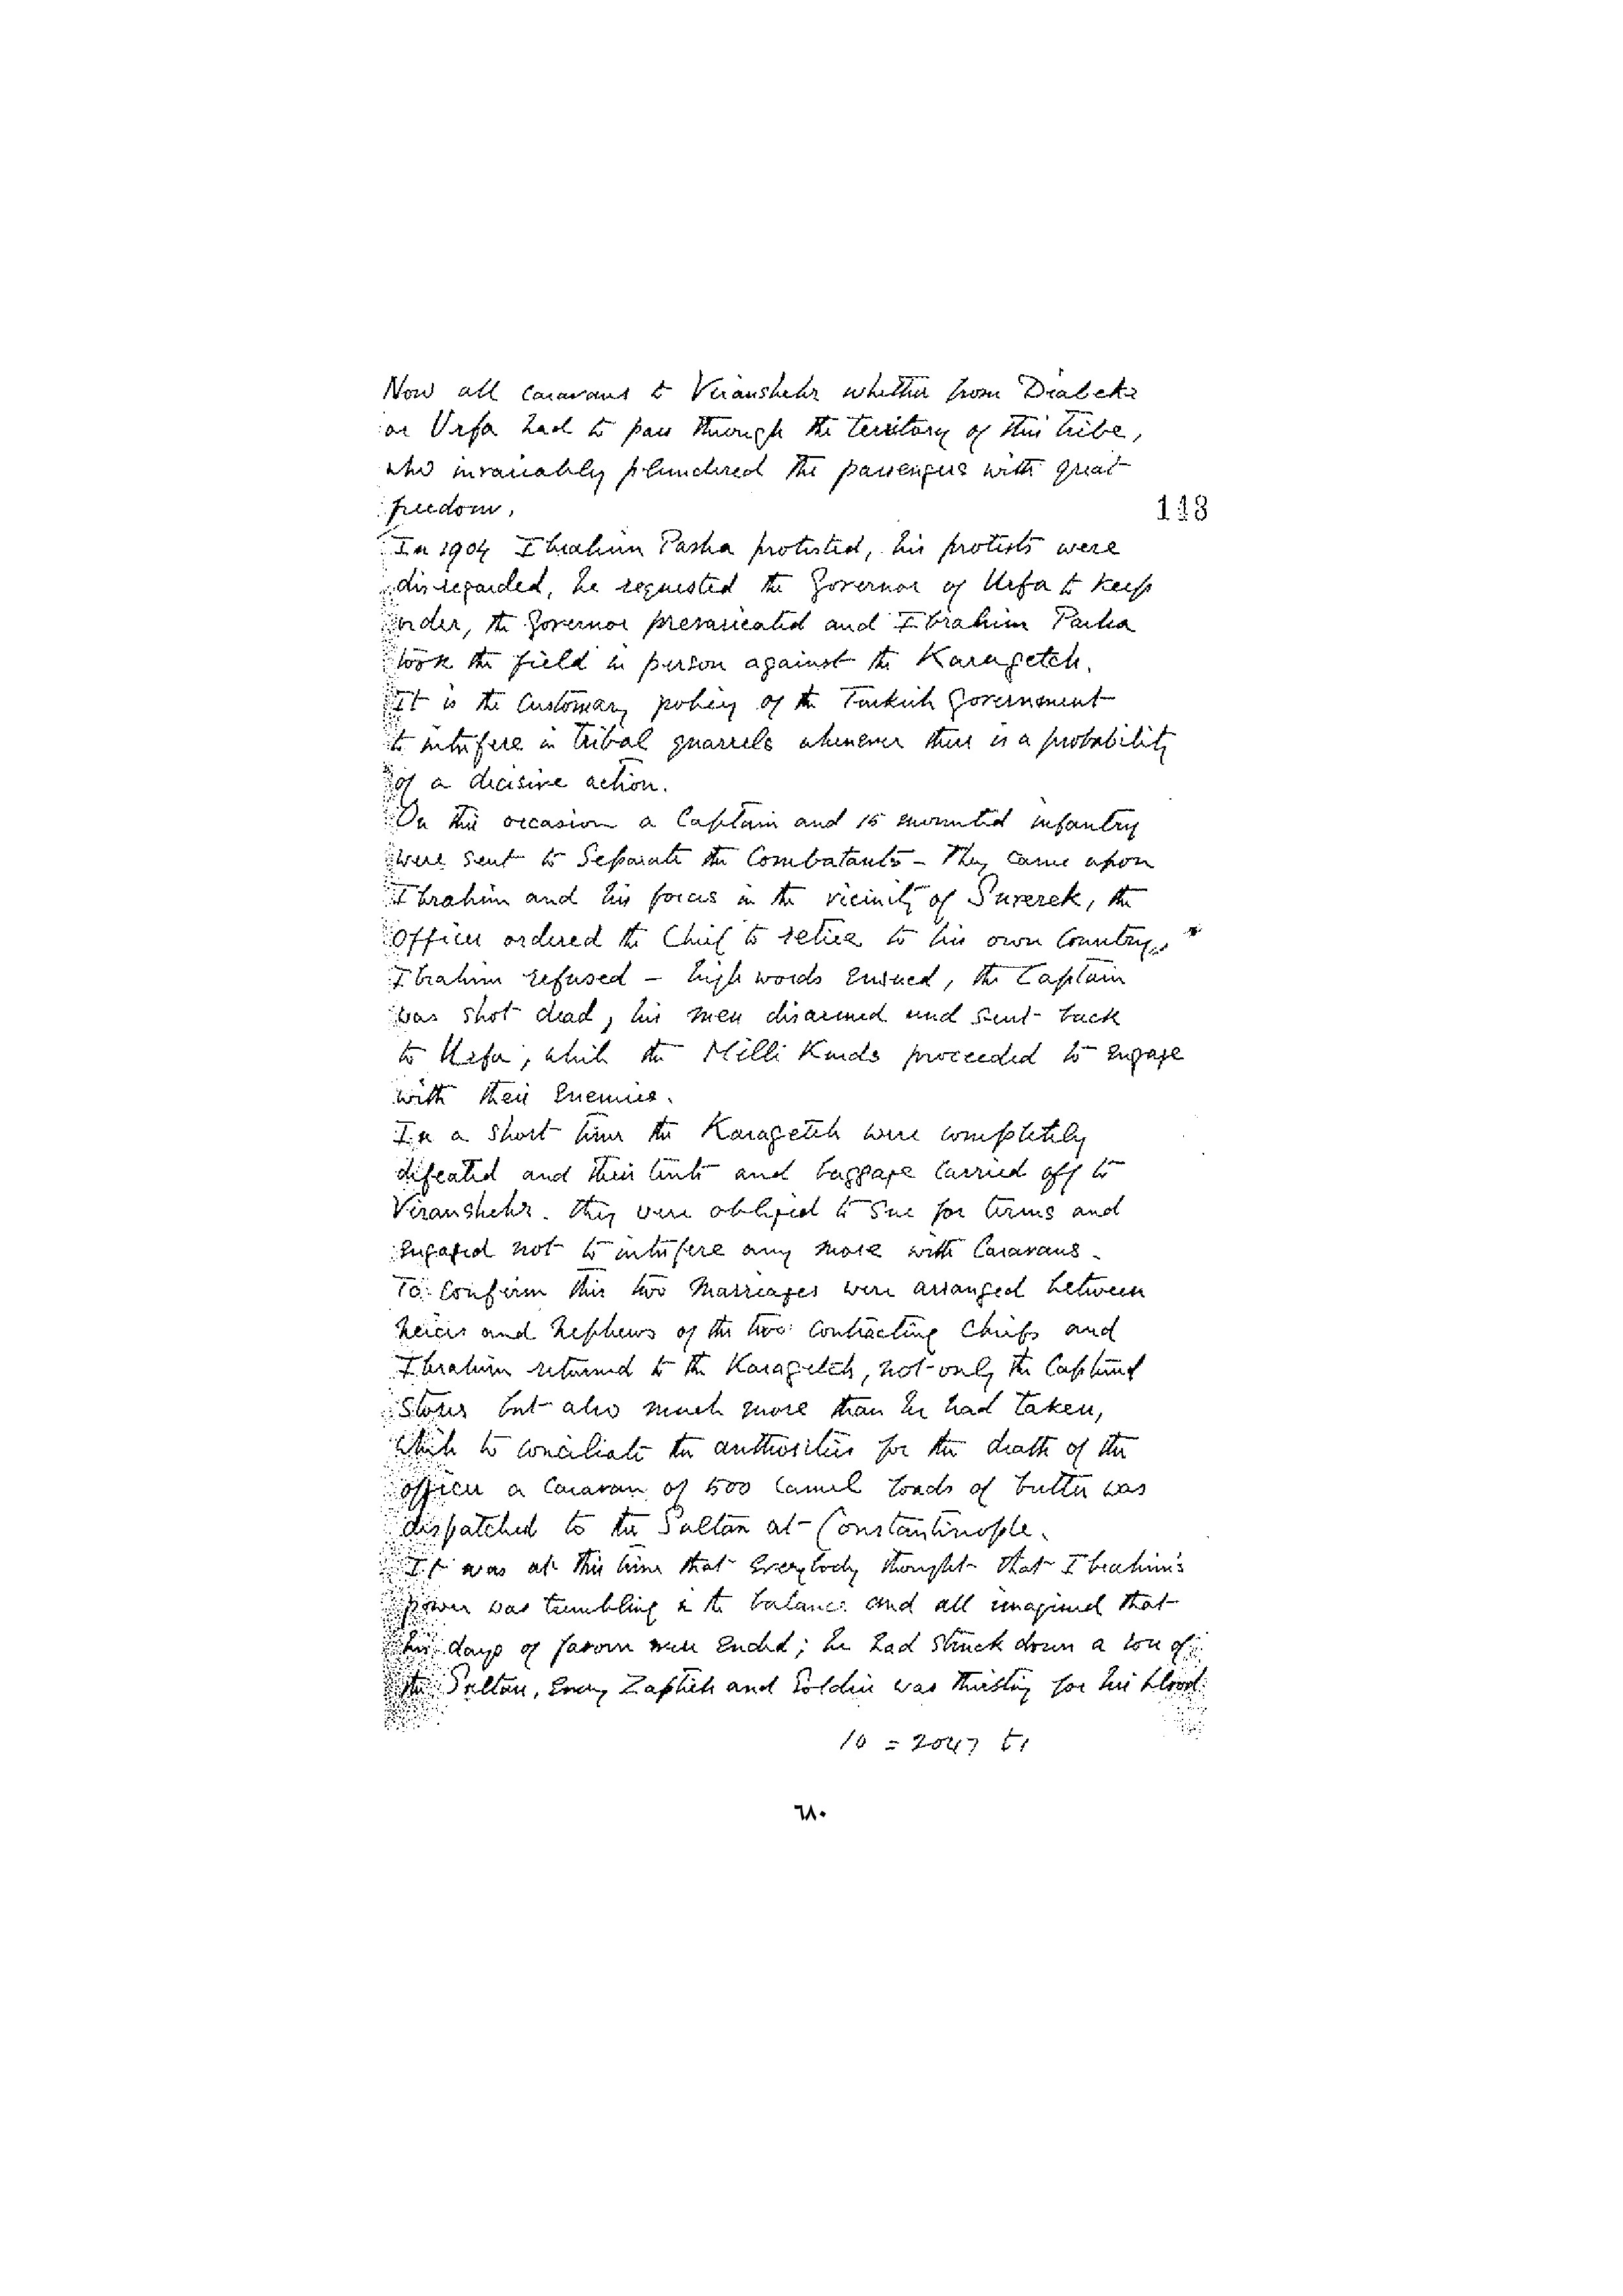 Now all caravans to Viranshehr whether from Diabekr
or Urfa had to pass through the territory of this tribe,
who invariably plundered the passengers with great
freedom.
113
In 1904 Ibrahim Pasha protested, his protests were
disregarded, he requested the Governor of Urfa to keep
order, the Governor prevaricated and Ibrahim Pasha
took the field in person against the Karagetch.
It is the Customary policy of the Turkish Government
to interfere in tribal quarrels whenever there is a probability
of a decisive action.
On this occasion a Captain and 15 mounted infantry
were sent to Separate the Combatants – They came upon
Ibrahim and his forces in the vicinity of Suverek, the
Officer ordered the Chief to retire to his own Country,
Ibrahim refused – high words ensued, the Captain
was shot dead, his men disarmed and sent back
to Urfa, while the Milli Kurds proceeded to engage
with their Enemies.
In a short time the Karagetch were completely
defeated and their tents and baggage carried off to
Viranshehr. they were obliged to Sue for terms and
engaged not to interfere any more with Caravans.
To Confirm this two Marriages were arranged between
neices and Nephews of the two Contracting Chiefs and
Ibrahim returned to the Karagetch, not only the Captured
Stores but also much more than he had taken,
while to conciliate the authorities for the death of the
officer a Caravan of 500 Camel loads of butter was
dispatched to the Sultan at Constantinople.
It was at this time that Everybody thought that Ibrahim's
power was trembling in the balance and all imagined that
his days of favour were Ended; he had Struck down a son of
the Sultan, Every Zaptieh and Soldier was thirsting for his blood
10 = 2047 t1
٦٨٠